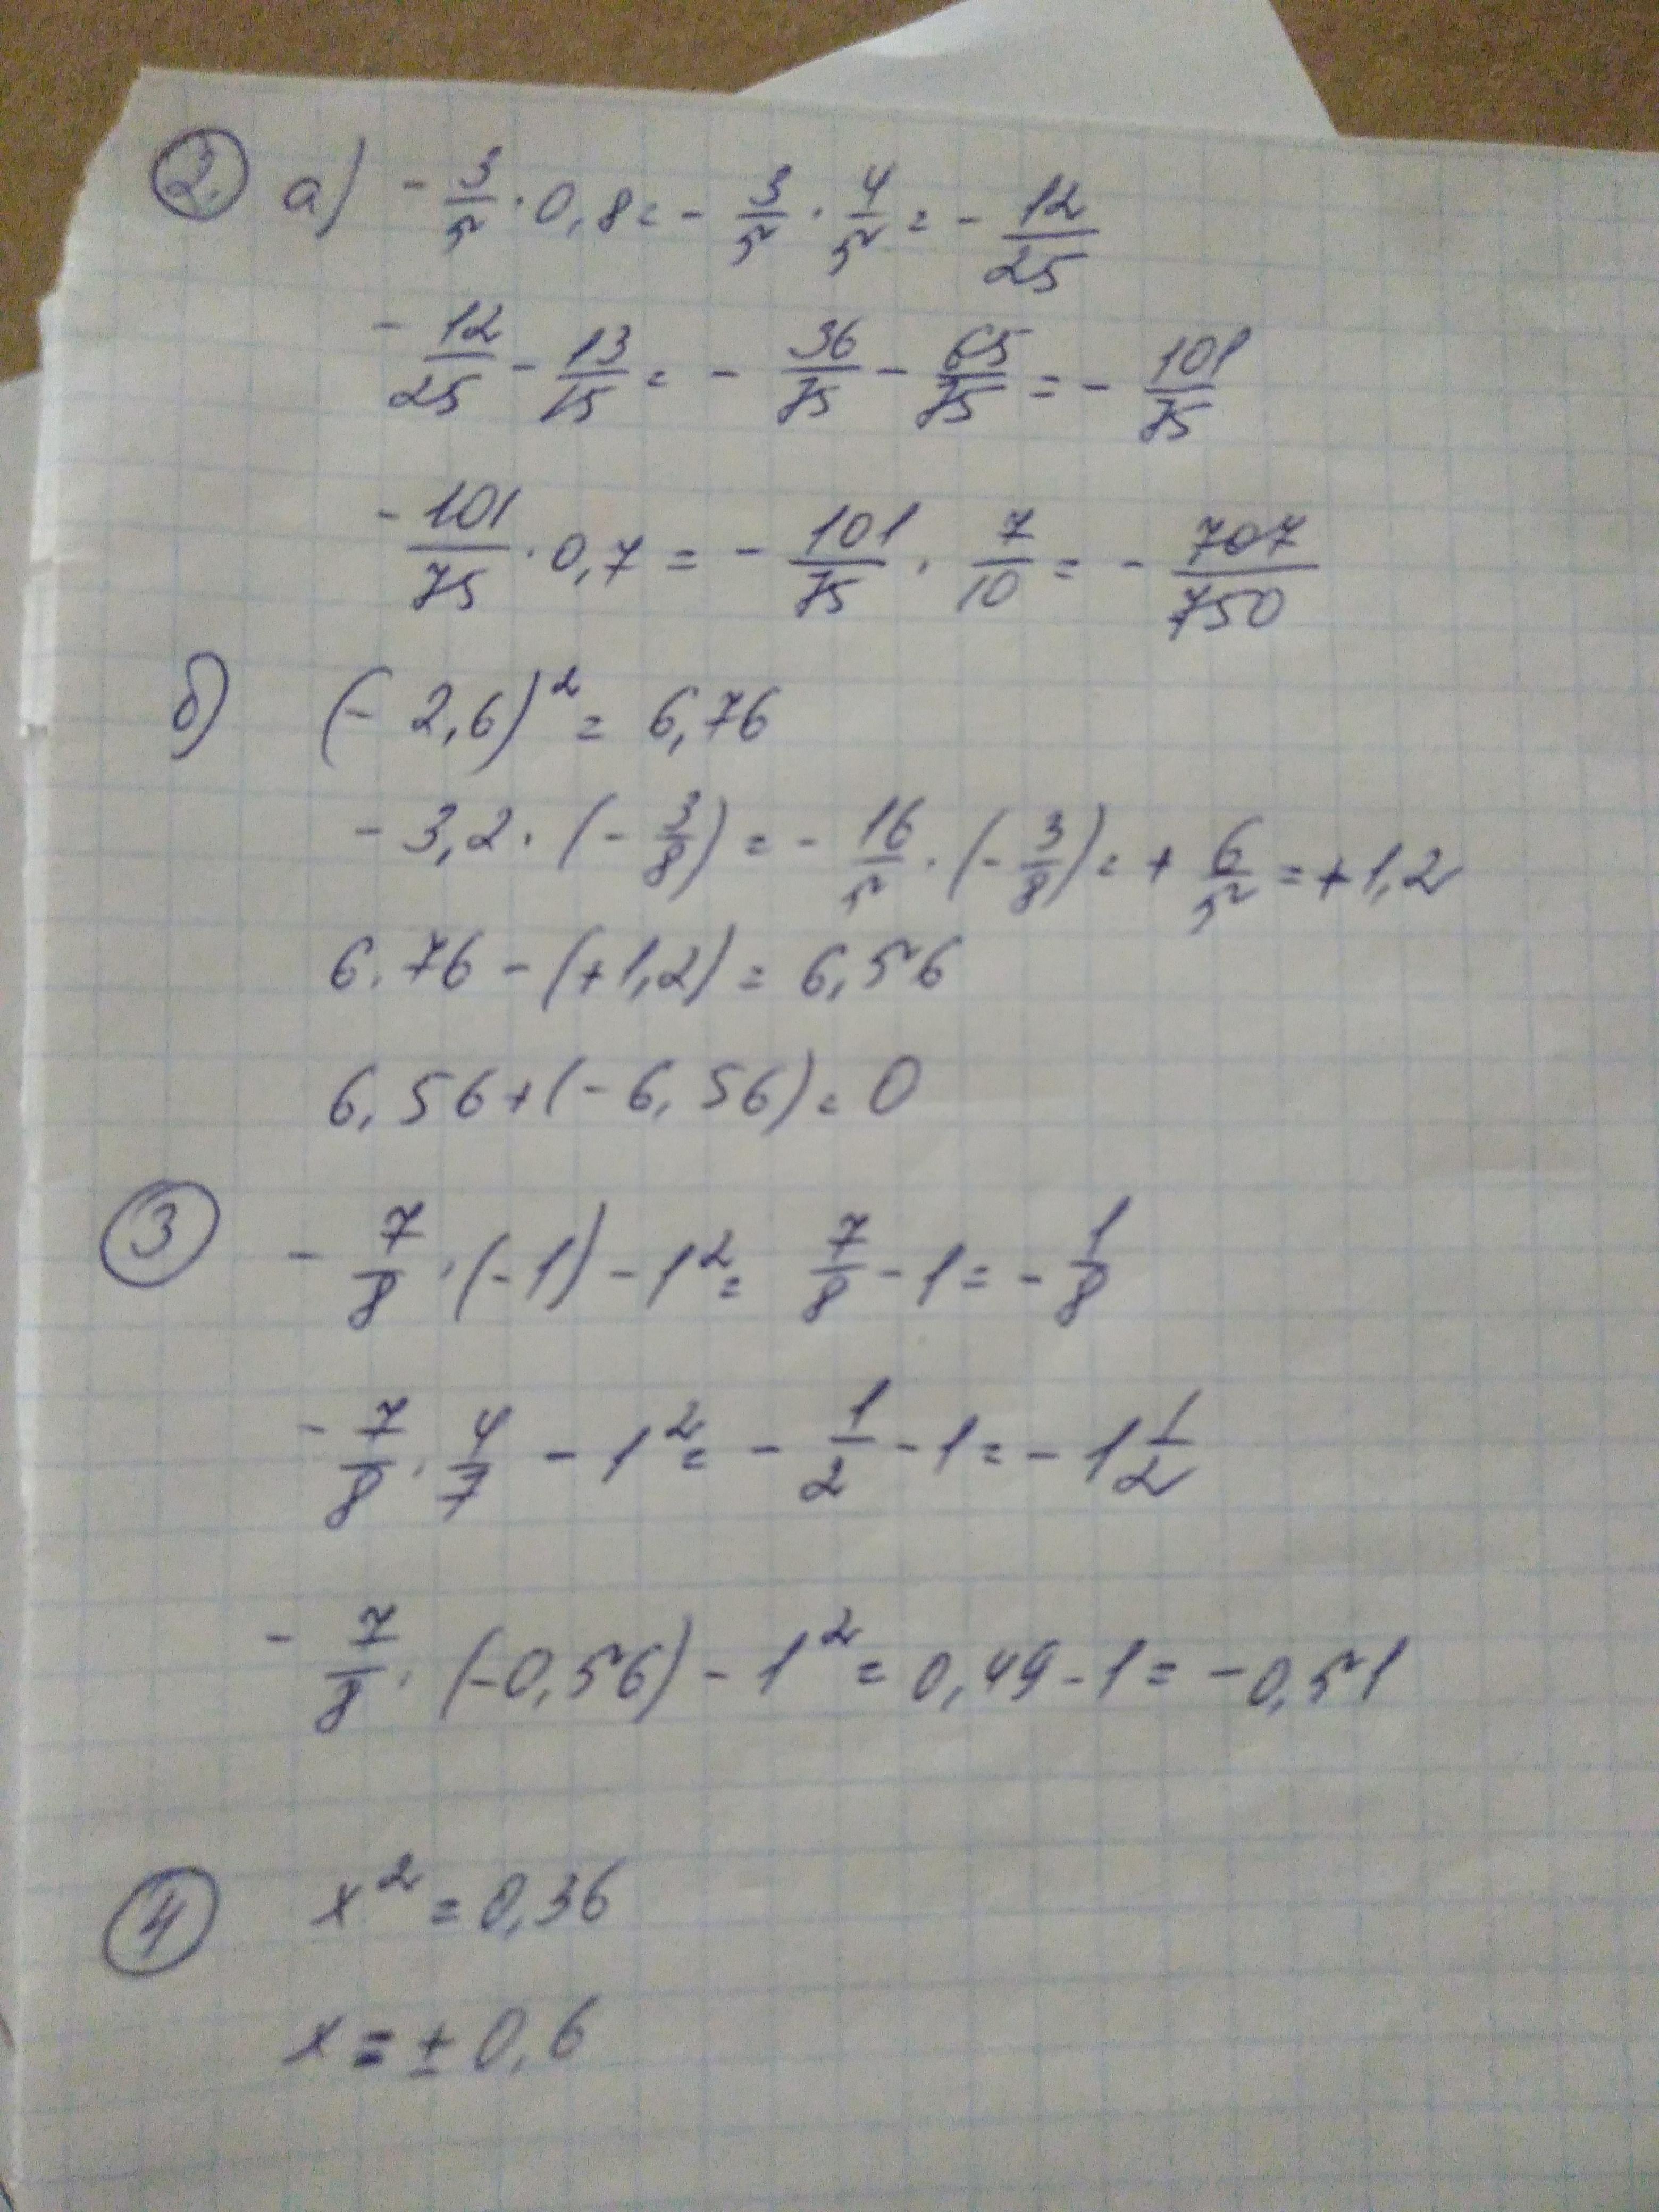 2. а) - 3/5 · 0,8 = - 3/5 · 4/5 = - 12/25
- 12/25 - 13/15 = - 36/75 - 65/75 = - 101/75
- 101/75 · 0,7 = - 101/75 · 7/10 = - 707/750
б) (- 2,6)² = 6,76
- 3,2 · (- 3/8) = - 16/5 · (- 3/8) = + 6/5 = +1,2
6.76 - (+1,2) = 6,56
6,56 + (- 6,56) = 0
3 - 7/8 · (-1) - 1² = 7/8 - 1 = - 1/8
- 7/8 · 4/7 - 1² = - 1/2 - 1 = - 1 1/2
- 7/8 · (-0,56) - 1² = 0,49 - 1 = -0,51
4 x² = 0,36
x = ± 0,6